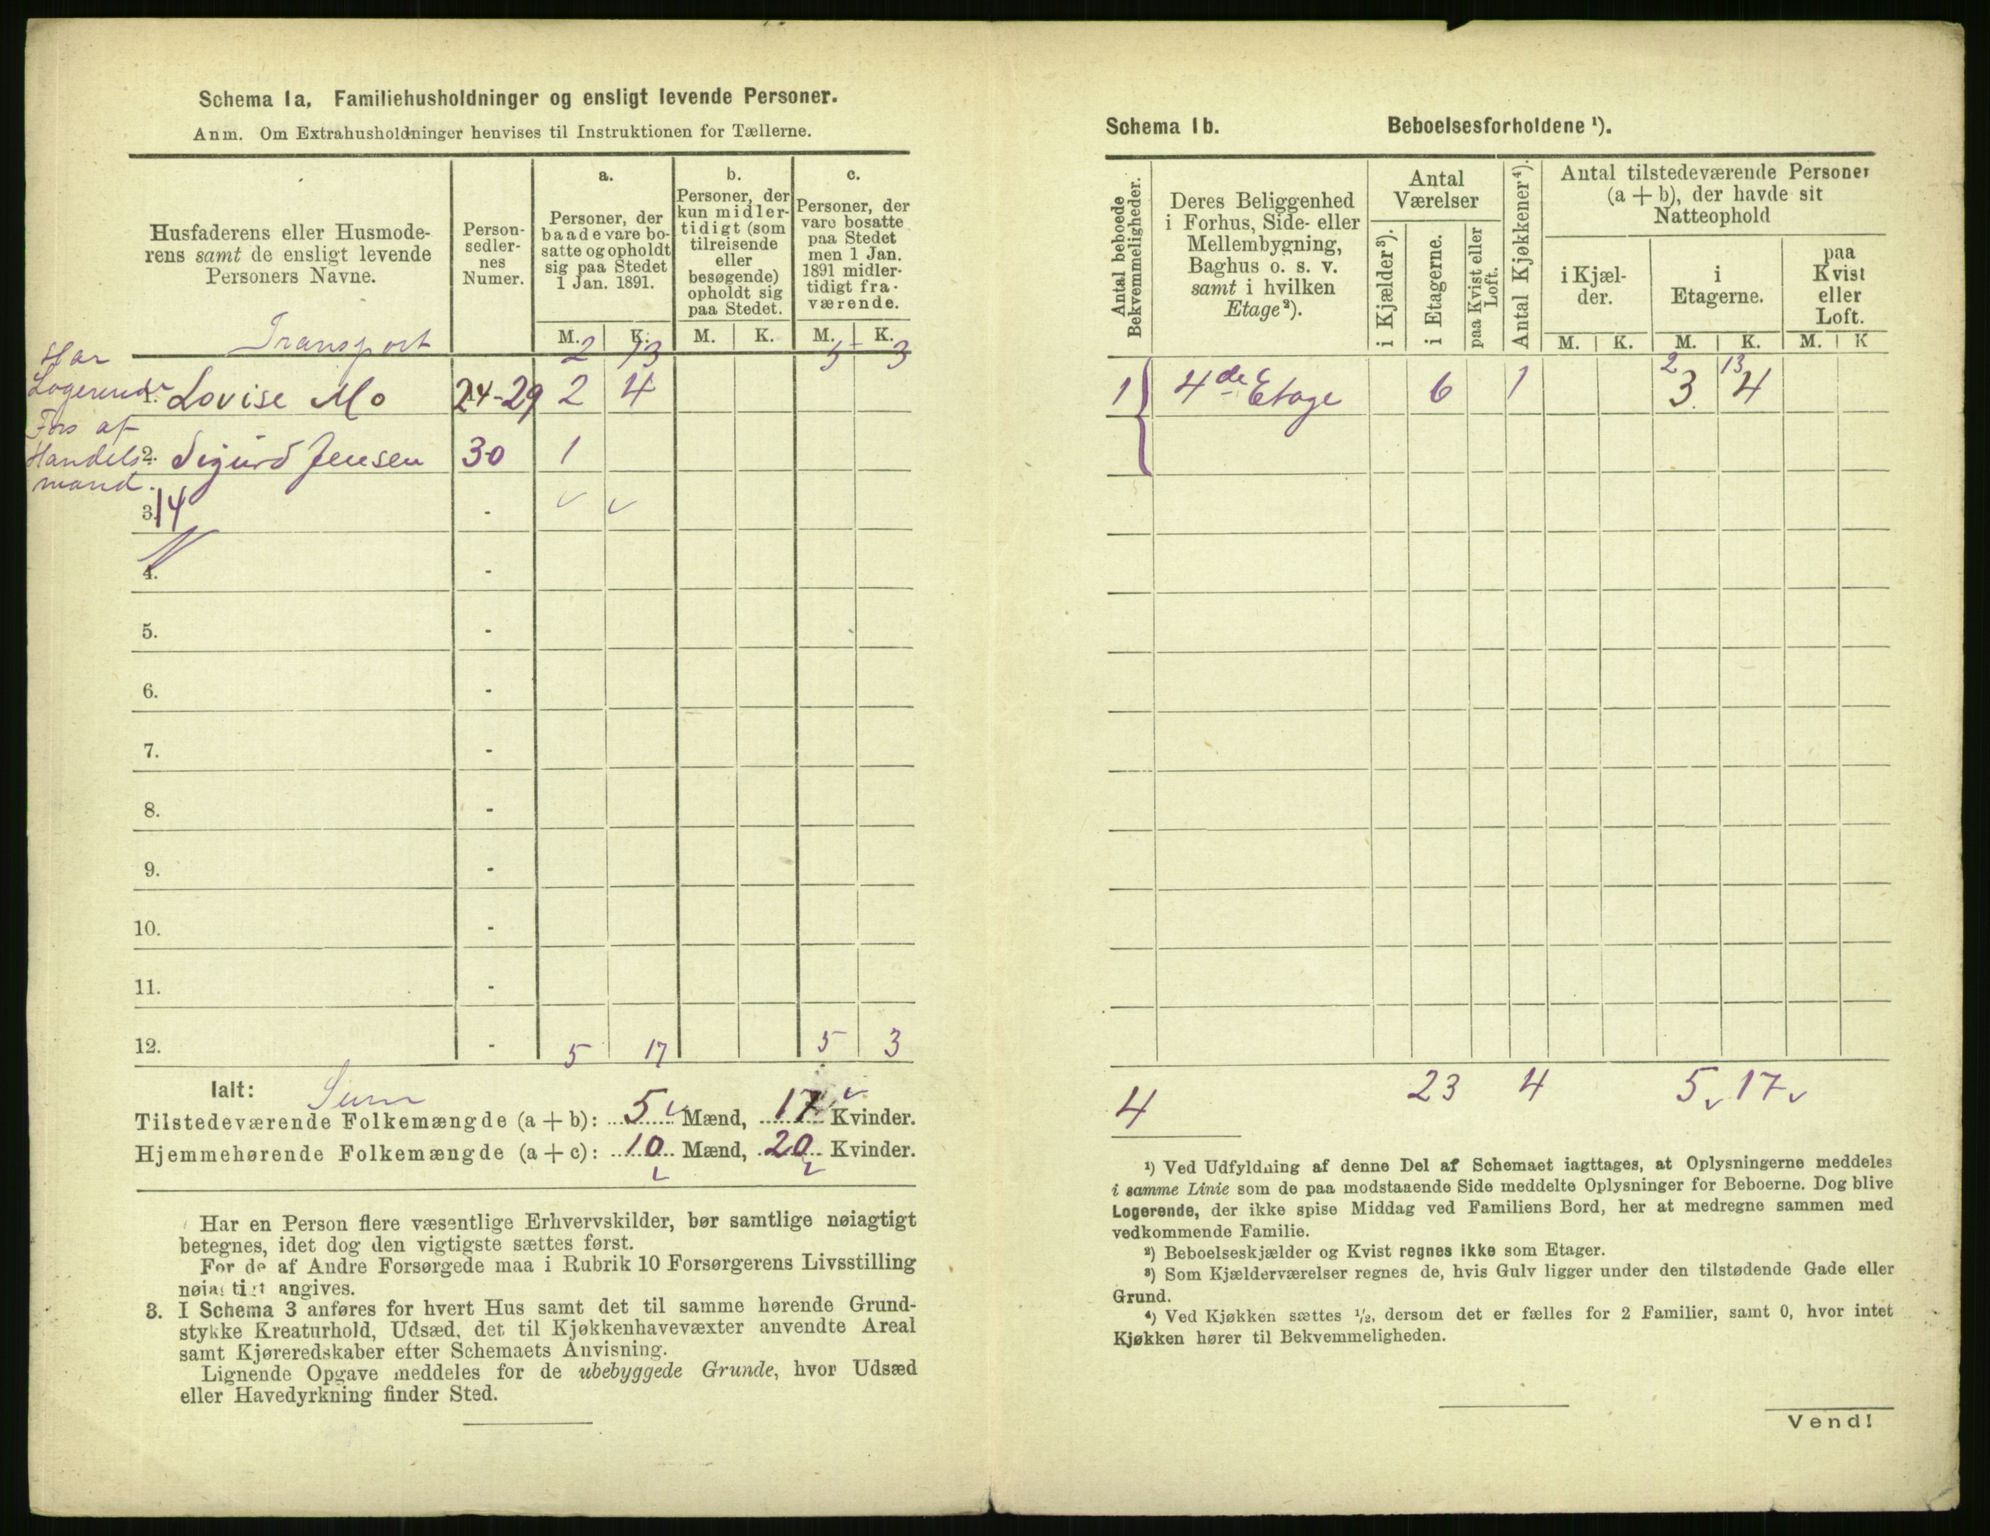 Schema 1a. Familiehusholdninger og ensligt levende Personer.
Anm. Om Extrahusholdninger henvises til Instruktionen for Tællerne.
Husfaderens eller Husmode-
rens samt de ensligt levende
Personers Navne.
Person-
sedler-
nes
Numer.
a.
Personer, der
baade vare bo-
satte og opholdt
sig paa Stedet
1 Jan. 1891.
b.
Personer, der
kun midler-
tidigt (som
tilreisende
eller
besøgende)
opholdt sig
paa Stedet.
c.
Personer, der
vare bosatte
paa Stedet
men 1 Jan.
1891 midler-
tidigt fra-
værende.
M. K. M. K. M. K.
Transport 2 13 5 3
Har
Logerende
Fors af
Handels
mand.
1. Lovise Mo 24-29 2 4
2. Sigurd Jensen 30 1
3. 14 -
4. -
5. -
6. -
7. -
8. -
9. -
10. -
11. -
12. - 5 17 5 3
Ialt: Sum
Tilstedeværende Folkemængde (a + b): 5 Mænd, 17 Kvinder.
Hjemmehørende Folkemængde (a + c): 10 Mænd, 20 Kvinder.
Har en Person flere væsentlige Erhvervskilder, bør samtlige nøiagtigt
betegnes, idet dog den vigtigste sættes først.
For de af Andre Forsørgede maa i Rubrik 10 Forsørgerens Livsstilling
nøiagtigt angives.
3. I Schema 3 anføres for hvert Hus samt det til samme hørende Grund-
stykke Kreaturhold, Udsæd, det til Kjøkkenhavevæxter anvendte Areal
samt Kjøreredskaber efter Schemaets Anvisning.
Lignende Opgave meddeles for de ubebyggede Grunde, hvor Udsæd
eller Havedyrkning finder Sted.
Schema 1b. Beboelsesforholdene ¹).
Antal beboede
Bekvemmeligheder.
Deres Beliggenhed
i Forhus, Side- eller
Mellembygning,
Baghus o. s. v.
samt i hvilken
Etage²).
Antal
Værelser
i Kjælder³).
i Etagerne.
paa Kvist eller
Loft.
Antal Kjøkkener⁴).
Antal tilstedeværende Personer
(a + b), der havde sit
Natteophold
i Kjæl-
der.
i
Etagerne.
paa
Kvist
eller
Loft.
M. K. M. K. M. K
2 13
1 4de Etage 6 1 3 4
4 23 4 5 17
¹) Ved Udfyldning af denne Del af Schemaet iagttages, at Oplysningerne meddeles
i samme Linie som de paa modstaaende Side meddelte Oplysninger for Beboerne. Dog blive
Logerende, der ikke spise Middag ved Familiens Bord, her at medregne sammen med
vedkommende Familie.
²) Beboelseskjælder og Kvist regnes ikke som Etager.
³) Som Kjælderværelser regnes de, hvis Gulv ligger under den tilstødende Gade eller
Grund.
⁴) Ved Kjøkken sættes ½, dersom det er fælles for 2 Familier, samt 0, hvor intet
Kjøkken hører til Bekvemmeligheden.
Vend!